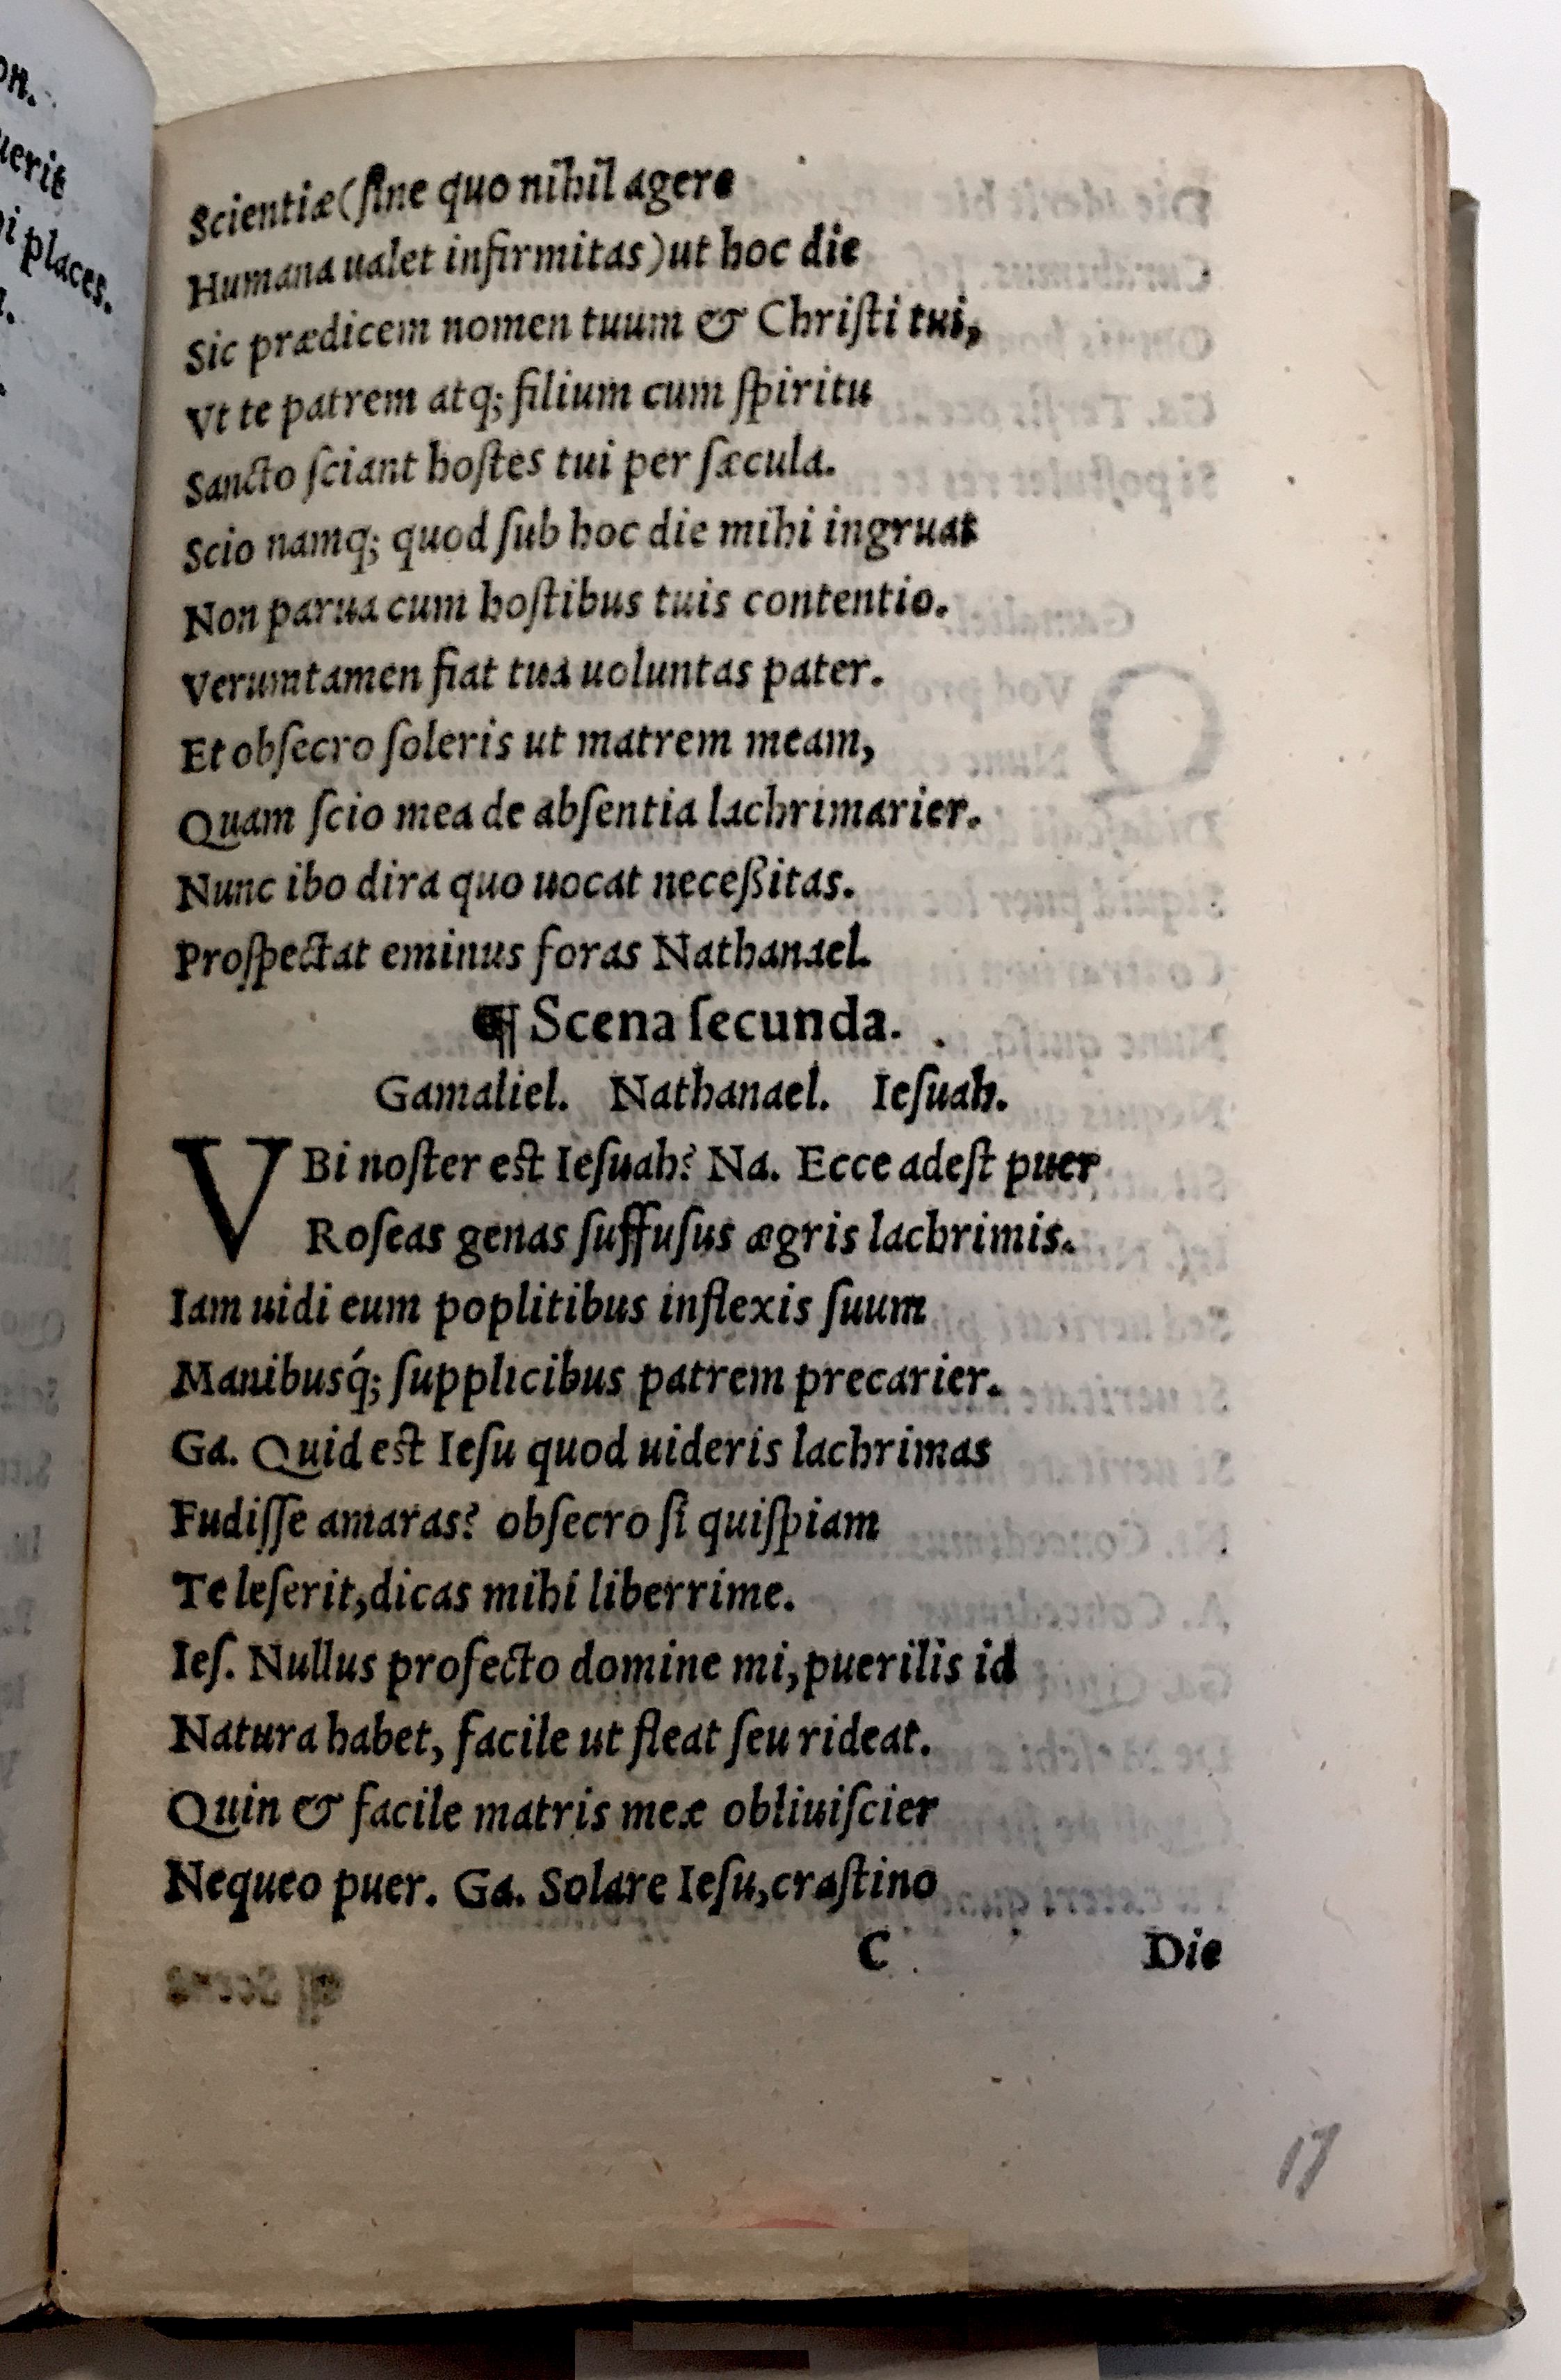 on.
uerit
i places.
Scientiæ (ſine quo nihil agere
Humana ualet infirmitas) ut hoc die
Sic prædicem nomen tuum & Chriſti tui,
Vt te patrem atq; filium cum ſpiritu
Sancto ſciant hoſtes tui per ſæcula.
Scio namq; quod ſub hoc die mihi ingruat
Non parua cum hoſtibus tuis contentio.
Verumtamen fiat tua uoluntas pater.
Et obſecro ſoleris ut matrem meam,
Quam ſcio mea de abſentia lachrimarier.
Nunc ibo dira quo uocat neceßitas.
Proſpectat eminus foras Nathanael.
¶ Scena ſecunda.
Gamaliel. Nathanael. Ieſuah.
VBi noſter est Ieſuah? Na. Ecce adeſt puer
Roſeas genas ſuffuſus ægris lachrimis.
Iam uidi eum poplitibus inflexis ſuum
Manibusq́; ſupplicibus patrem precarier.
Ga. Quid est Ieſu quod uideris lachrimas
Fudiſſe amaras? obſecro ſi quiſpiam
Te leſerit, dicas mihi liberrime.
Ieſ. Nullus profecto domine mi, puerilis id
Natura habet, facile ut fleat ſeu rideat.
Quin & facile matris meæ obliuiſcier
Nequeo puer. Ga. Solare Ieſu, craſtino
C Die
17